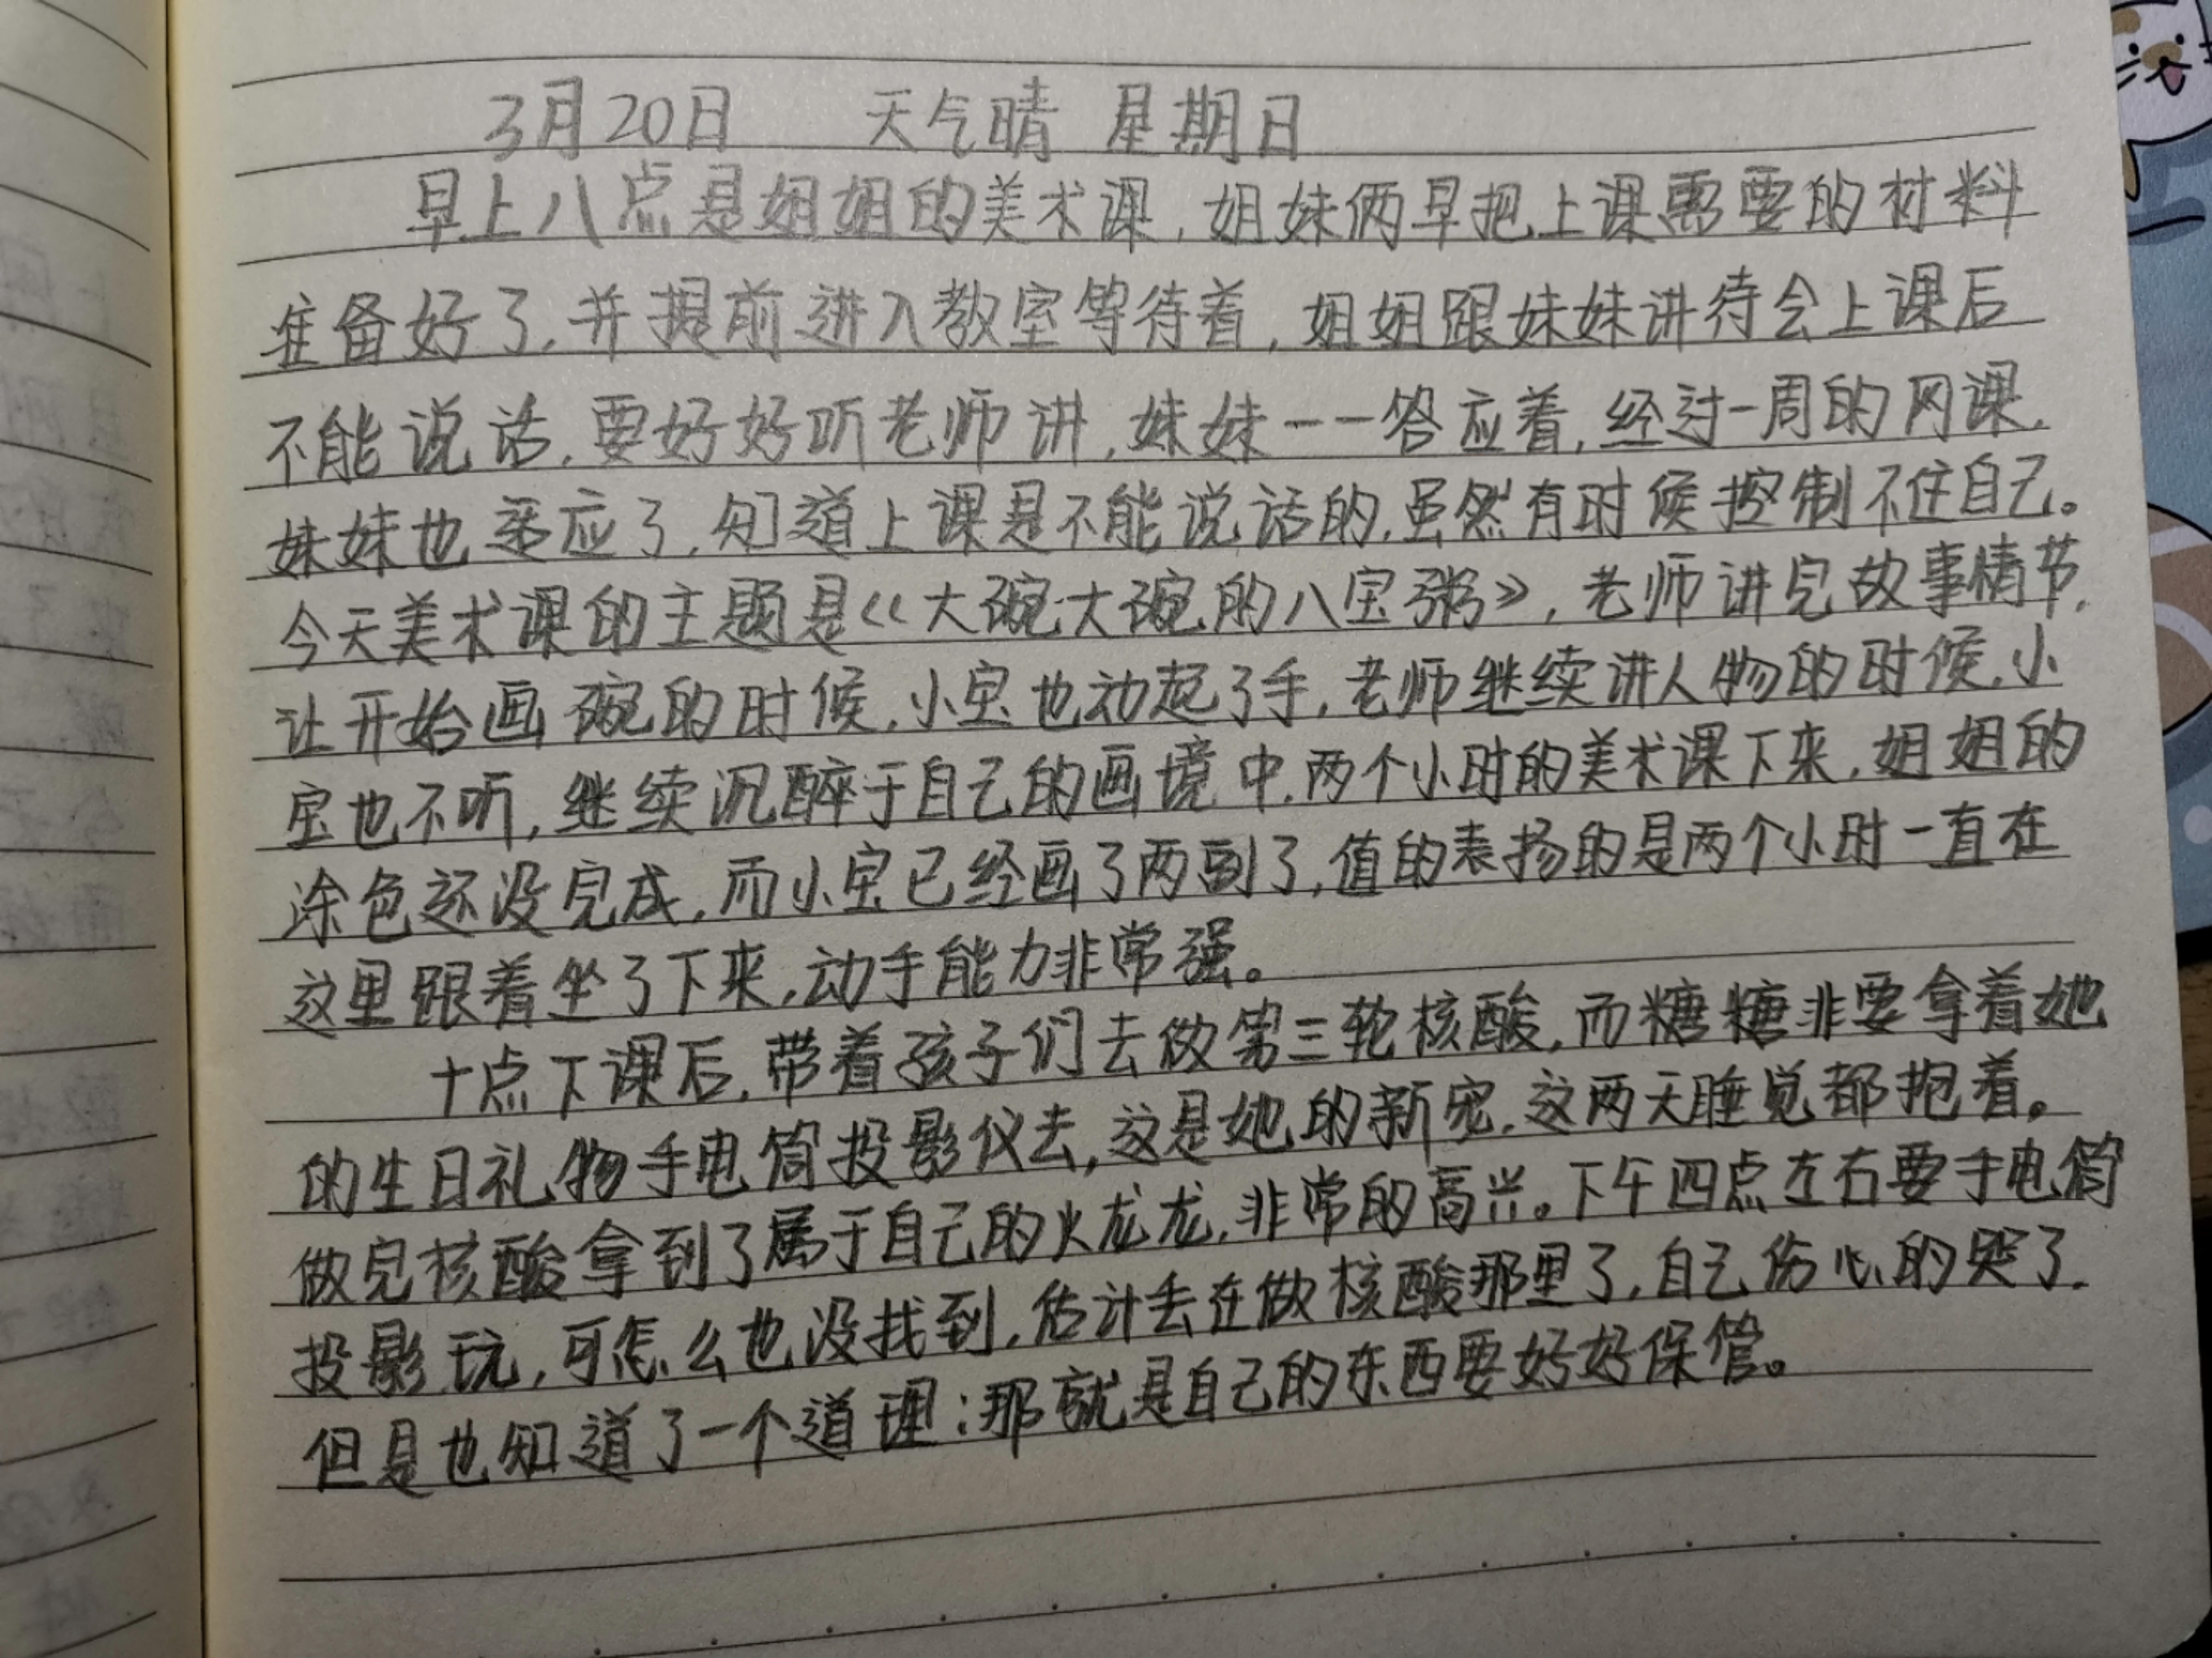 3月20日 天气晴 星期日
早上八点是姐姐的美术课，姐妹俩早把上课需要的材料
准备好了，并提前进入教室等待着，姐姐跟妹妹讲待会上课后
不能说话，要好好听老师讲，妹妹一一答应着，经过一周的网课，
妹妹也适应了，知道上课是不能说话的，虽然有时候控制不住自己。
今天美术课的主题是《大碗大碗的八宝粥》，老师讲完故事情节，
让开始画碗的时候，小宝也动起了手，老师继续讲人物的时候，小
宝也不听，继续沉醉于自己的画境中，两个小时的美术课下来，姐姐的
涂色还没完成，而小宝已经画了两副了，值的表扬的是两个小时一直在
这里跟着坐了下来，动手能力非常强。
十点下课后，带着孩子们去做第三轮核酸，而糖糖非要拿着她
的生日礼物手电筒投影仪去，这是她的新宠，这两天睡觉都抱着。
做完核酸拿到了属于自己的火龙龙，非常的高兴。下午四点左右要手电筒
投影玩，可怎么也没找到，估计丢在做核酸那里了，自己伤心的哭了，
但是也知道了一个道理：那就是自己的东西要好好保管。